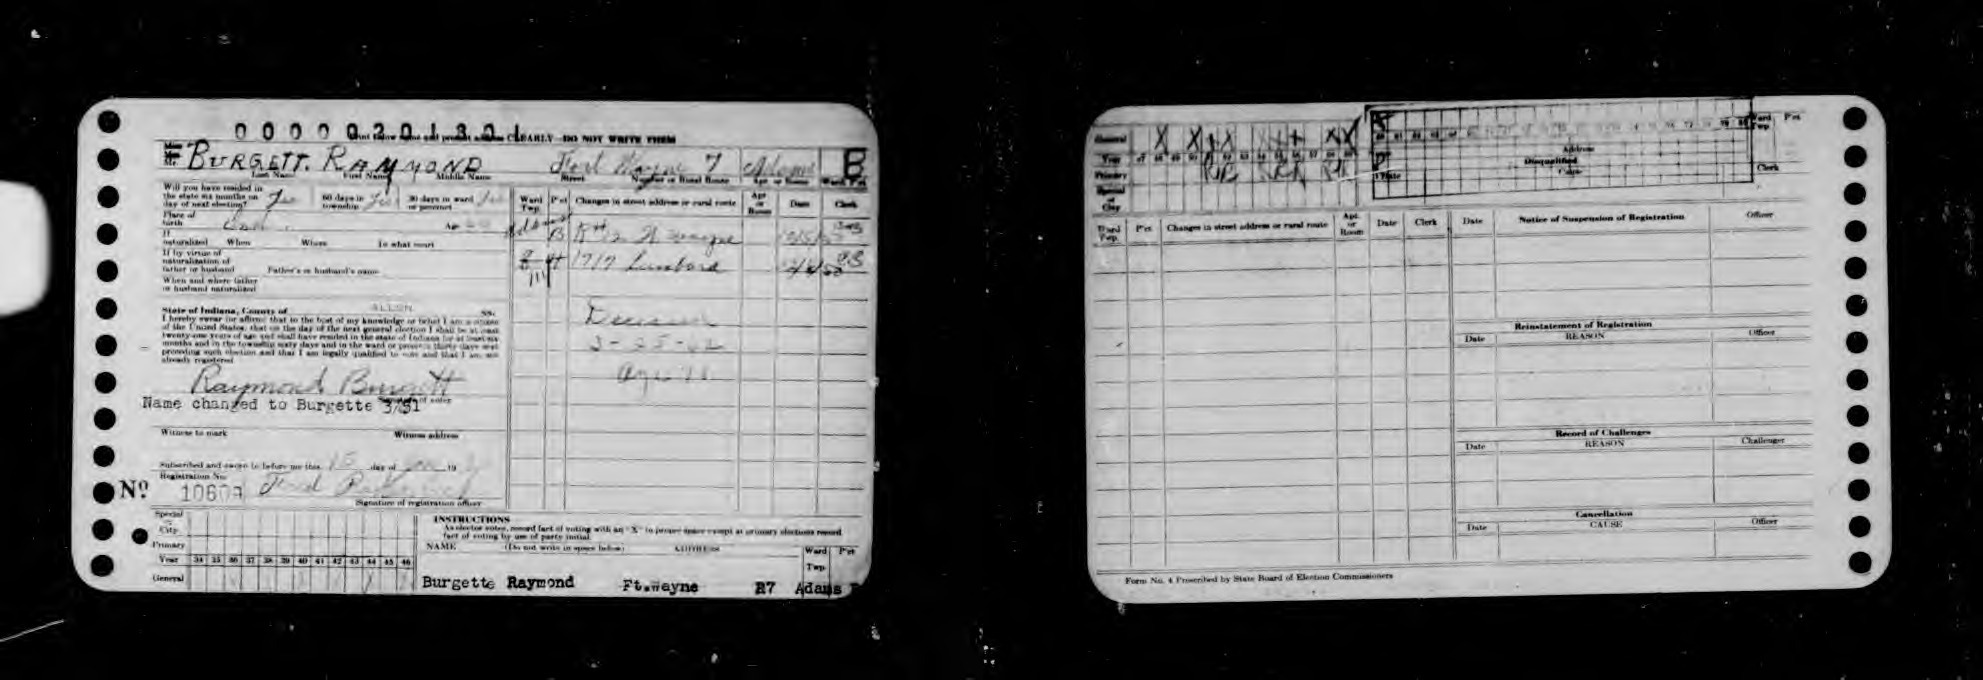 0 0 0 0 0 2 0 1 3 0 1
CLEARLY—DO NOT WRITE THEM
BURGETT, RAYMOND Fort Wayne 7 Adams B
Last Name First Name Middle Name Street Number or Rural Route Apt. or Room Ward Pct.
Will you have resided in the state six months on day of next election? Yes 60 days in township Yes 30 days in ward or precinct Yes
Place of birth Age
If naturalized When Where In what court
If by virtue of naturalization of father or husband Father's or husband's name
When and where father or husband naturalized
State of Indiana, County of ALLEN ss.
I hereby swear (or affirm) that to the best of my knowledge or belief I am a citizen
of the United States; that on the day of the next general election I shall be at least
twenty-one years of age and shall have resided in the state of Indiana for at least six
months and in the township sixty days and in the ward or precinct thirty days next
preceding such election and that I am legally qualified to vote and that I am not
already registered.
Raymond Burgett
Signature of voter
Name changed to Burgette 3/51
Witness to mark Witness address
Subscribed and sworn to before me this 15 day of 19
Registration No.
No 10609
Signature of registration officer
Ward Twp. P'ct Changes in street address or rural route Apt. or Room Date Clerk
Adams B R#12 Ft Wayne
8 H 1717 Lumbard
Deceased
3-25-62
Special or City
Primary
Year 34 35 36 37 38 39 40 41 42 43 44 45 46
General
INSTRUCTIONS
As elector votes, record fact of voting with an "X" in proper space except at primary elections record
fact of voting by use of party initial.
NAME (Do not write in space below) ADDRESS Ward Twp. P'ct
Burgette Raymond Ft.Wayne R7 Adams B
General X X X X X X
Year 47 48 49 50 51 52 53 54 55 56 57 58 59
Primary
Special or City
Address
Disqualified
Cause
Date
Ward Twp. P'ct
Clerk
Ward Twp. P'ct Changes in street address or rural route Apt. or Room Date Clerk
Date Notice of Suspension of Registration Officer
Reinstatement of Registration
Date REASON Officer
Record of Challenges
Date REASON Challenger
Cancellation
Date CAUSE Officer
Form No. 4 Prescribed by State Board of Election Commissioners